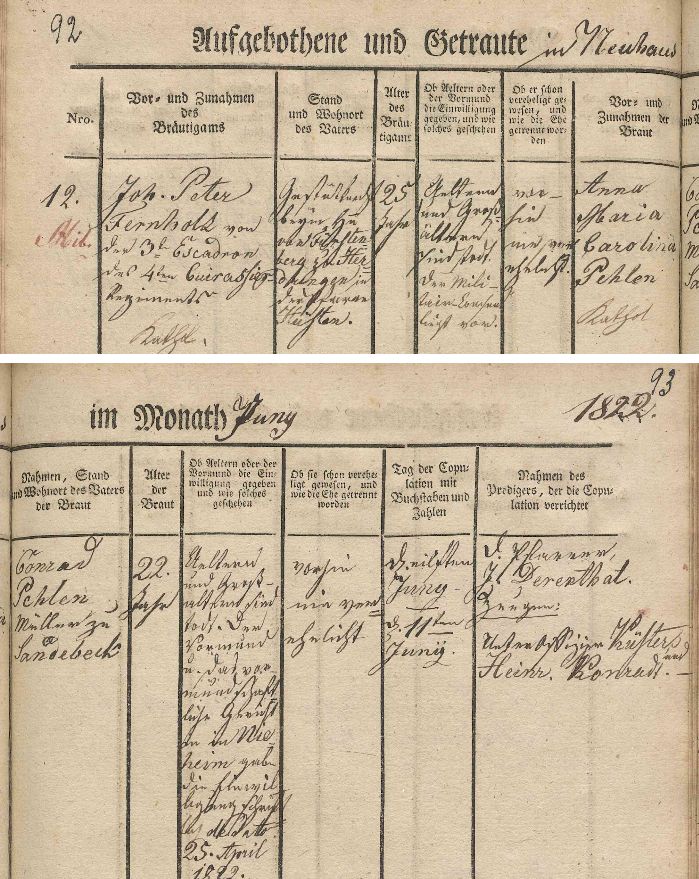 92
Aufgebothene und Getraute in Neuhaus
Nro.
Vor- und Zunahmen
des
Bräutigams
Stand
und Wohnort
des Vaters
Alter
des
Bräu-
tigams
Ob Aeltern oder
der Vormund
die Einwilligung
gegeben, und wie
solches geschehen
Ob er schon
vereheligt ge-
wesen, und
wie die Ehe
getrennt wor-
den
Vor- und
Zunahmen der
Braut
12.
Mil.
Joh. Peter
Fernholz von
der 3t Escadron
des 4ten Cuirassier-
Regiments
Kathol.
Gestütten
beym H
von Fürsten-
berg zu Her-
dringen in
der Pfarre
Hüsten.
25
Jahr
Aeltern
und Groß-
ältern
sind todt.
Der Mili-
tair-Consens
liegt vor.
vor-
hin
nie ver
ehelicht.
Anna
Maria
Carolina
Pehlen
Kathol
93
im Monath Juny
1822.
Nahmen, Stand
und Wohnort des Vaters
der Braut
Alter
der
Braut
Ob Aeltern oder der
Vormund die Ein-
willigung gegeben
und wie solches
geschehen
Ob sie schon verehe-
ligt gewesen, und
wie die Ehe getrennt
worden
Tag der Copu-
lation mit
Buchstaben und
Zahlen
Nahmen des
Predigers, der die Copu-
lation verrichtet
Conrad
Pehlen
Müller zu
Sandebeck
22.
Jahr
Aeltern
und Groß-
ältern sind
todt. Der
Vormund
u. das vor-
mundschaft
liche Gericht
in Nie-
heim gaben
die Einwil-
ligung schrift
lich de dato
25. April
1822.
vorhin
nie ver
ehelicht
D. eilften
Juny
d. 11ten
Juny.
d. Pfarrer,
J. Derenthal.
Zeugen:
Unteroffizier Küsters und
Heinr. Konradt.